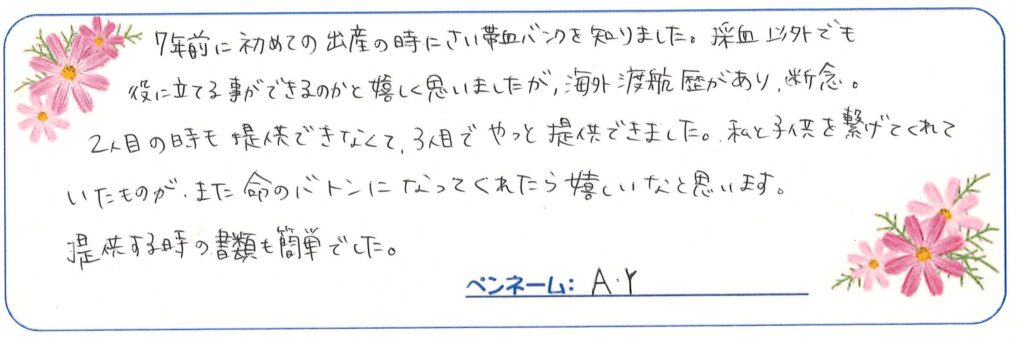 7年前に初めての出産の時にさい帯血バンクを知りました。採血以外でも
役に立てる事ができるのかと嬉しく思いましたが、海外渡航歴があり、断念。
2人目の時も提供できなくて、3人目でやっと提供できました。私と子供を繋げてくれて
いたものが、また命のバトンになってくれたら嬉しいなと思います。
提供する時の書類も簡単でした。
ペンネーム: A.Y